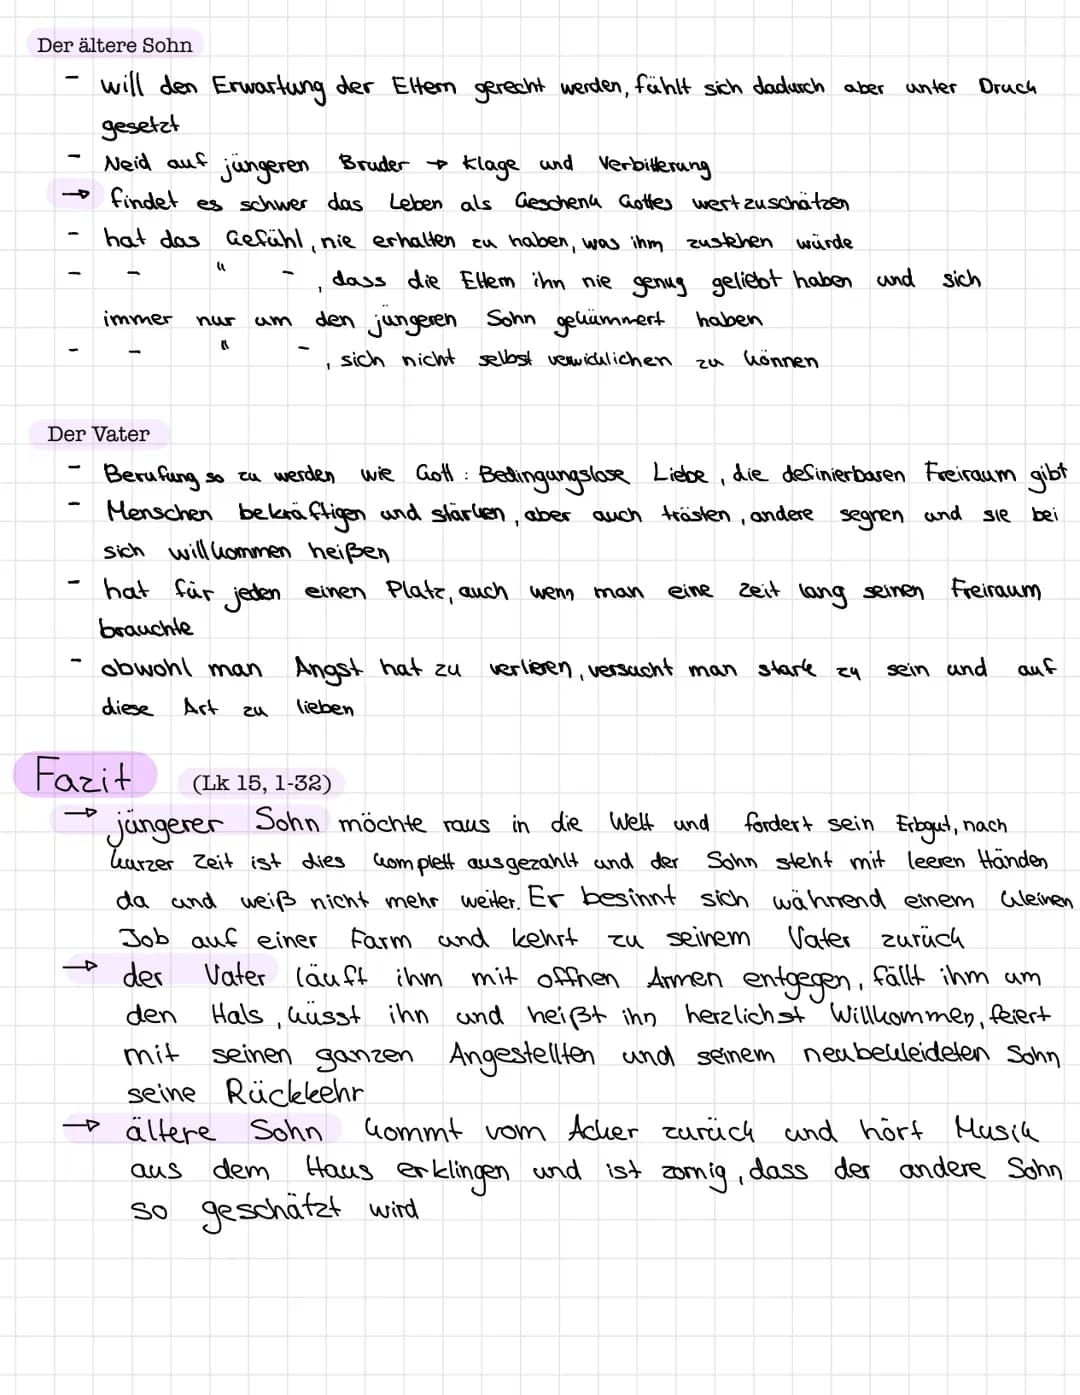 Der ältere Sohn
- will den Erwartung der Eltern gerecht werden, fühlt sich dadurch aber unter Druck
gesetzt
- Neid auf jüngeren Bruder → Klage und Verbitterung
→ findet es schwer das Leben als Geschenk Gottes wertzuschätzen
- hat das Gefühl, nie erhalten zu haben, was ihm zustehen würde
- - " - , dass die Eltern ihn nie genug geliebt haben und sich
immer nur um den jüngeren Sohn gekümmert haben
- - " - , sich nicht selbst verwirklichen zu können
Der Vater
- Berufung so zu werden wie Gott : Bedingungslose Liebe, die definierbaren Freiraum gibt
- Menschen bekräftigen und stärken, aber auch trösten, andere segnen und sie bei
sich willkommen heißen
- hat für jeden einen Platz, auch wenn man eine Zeit lang seinen Freiraum
brauchte
- obwohl man Angst hat zu verlieren, versucht man stark zu sein und auf
diese Art zu lieben
Fazit (Lk 15, 1-32)
→ jüngerer Sohn möchte raus in die Welt und fordert sein Erbgut, nach
kurzer Zeit ist dies komplett ausgezahlt und der Sohn steht mit leeren Händen
da und weiß nicht mehr weiter. Er besinnt sich während einem kleinen
Job auf einer Farm und kehrt zu seinem Vater zurück
→ der Vater läuft ihm mit offnen Armen entgegen, fällt ihm um
den Hals, küsst ihn und heißt ihn herzlichst Willkommen, feiert
mit seinen ganzen Angestellten und seinem neubekleideten Sohn
seine Rückkehr
→ ältere Sohn kommt vom Acker zurück und hört Musik
aus dem Haus erklingen und ist zornig, dass der andere Sohn
so geschätzt wird